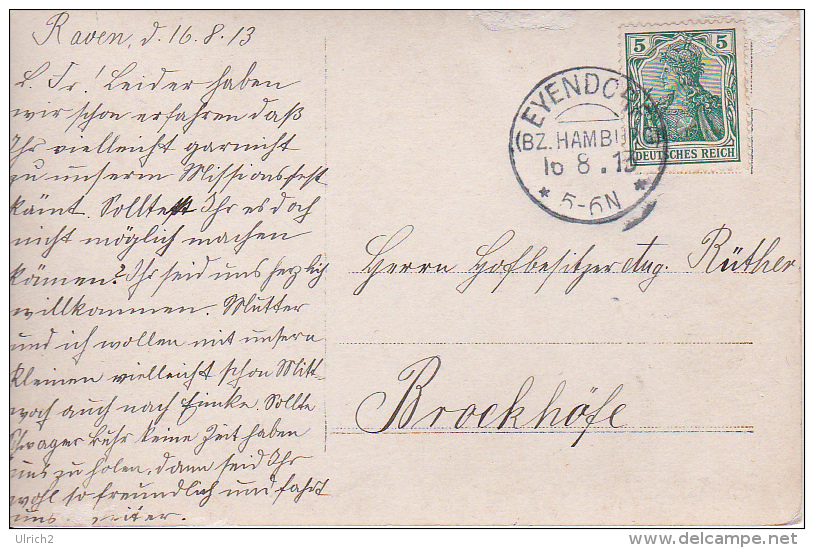 Raven, d. 16.8.13
L. Fr.! Leider haben
wir schon erfahren daß
Ihr vielleicht garnicht
zu unserm Missionsfest
kämt. Sollten Ihr es doch
nicht möglich machen
kömen? Ihr seid uns herzlich
willkommen. Mutter
und ich wollen mit unsern
kleinen vielleicht schon Mitt-
woch auch nach Eimke. Sollte
Schwager Behr keine Zeit haben
uns zu holen, dann seid Ihr
wohl so freundlich und fahrt
uns weiter.
5 5
DEUTSCHES REICH
EYENDORF
(BZ. HAMBURG)
16 8.13
* 5-6N *
Herrn Hofbesitzer Aug. Rüther
Brockhöfe
Ulrich2
http://www.delcampe.net